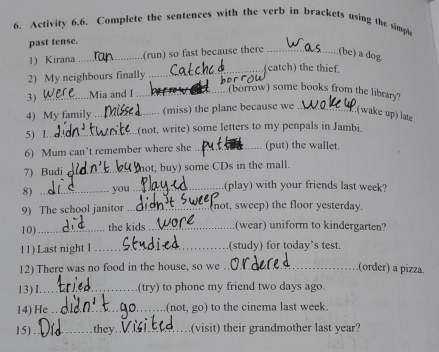 6. Activity 6.6. Complete the sentences with the verb in brackets using the simple
past tense.
1) Kirana ran (run) so fast because there was (be) a dog.
2) My neighbours finally Catched (catch) the thief.
3) Were Mia and I borrow (borrow) some books from the library?
4) My family missed (miss) the plane because we woke up (wake up) late.
5) I didn't write (not, write) some letters to my penpals in Jambi.
6) Mum can't remember where she put (put) the wallet.
7) Budi didn't buy (not, buy) some CDs in the mall.
8) did you played (play) with your friends last week?
9) The school janitor didn't sweep (not, sweep) the floor yesterday.
10) did the kids wore (wear) uniform to kindergarten?
11) Last night I studied (study) for today's test.
12) There was no food in the house, so we ordered (order) a pizza.
13) I tried (try) to phone my friend two days ago.
14) He didn't go (not, go) to the cinema last week.
15) Did they visited (visit) their grandmother last year?